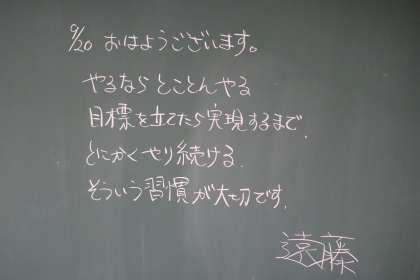 9/20 おはようございます。
やるならとことんやる
目標を立てたら実現するまで、
とにかくやり続ける.
そういう習慣が大切です.
遠藤